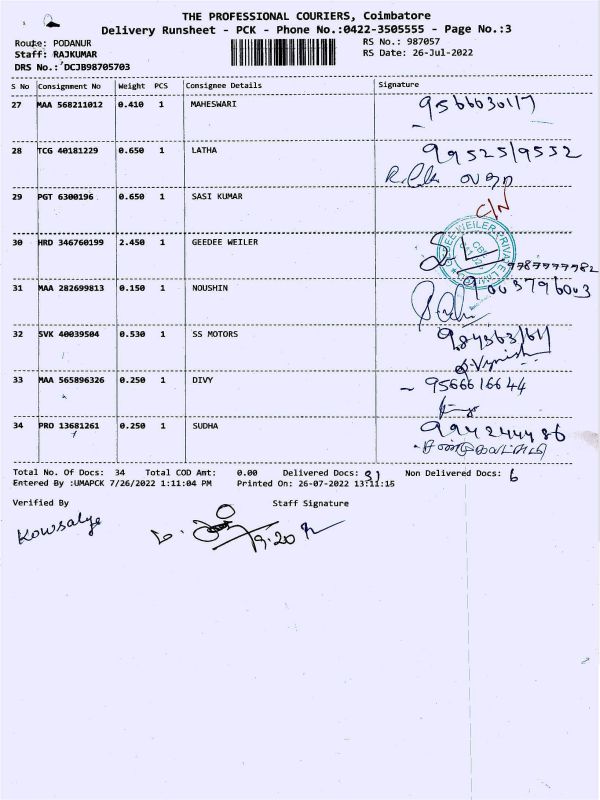 THE PROFESSIONAL COURIERS, Coimbatore
Delivery Runsheet - PCK - Phone No.:0422-3505555 - Page No.:3
Route: PODANUR
RS No.: 987057
Staff: RAJKUMAR
RS Date: 26-Jul-2022
DRS No.: DCJB98705703
S No Consignment No Weight PCS Consignee Details Signature
27 MAA 568211012 0.410 1 MAHESWARI 9566030117
28 TCG 40181229 0.650 1 LATHA 9952519552
29 PGT 6300196 0.650 1 SASI KUMAR C/N
30 HRD 346760199 2.450 1 GEEDEE WEILER 9787777782
31 MAA 282699813 0.150 1 NOUSHIN 9003796003
32 SVK 40039504 0.530 1 SS MOTORS
33 MAA 565896326 0.250 1 DIVY 9566616644
34 PRO 13681261 0.250 1 SUDHA 9942244486
Total No. Of Docs: 34 Total COD Amt: 0.00 Delivered Docs: Non Delivered Docs: 6
Entered By :UMAPCK 7/26/2022 1:11:04 PM Printed On: 26-07-2022 13:11:15
Verified By Staff Signature
Kowsalye